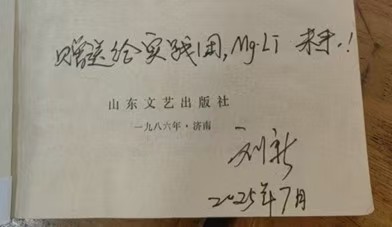 赠送给实践团,Mg-Li 未来!
山东文艺出版社
一九八六年·济南
刘新
2025年7月